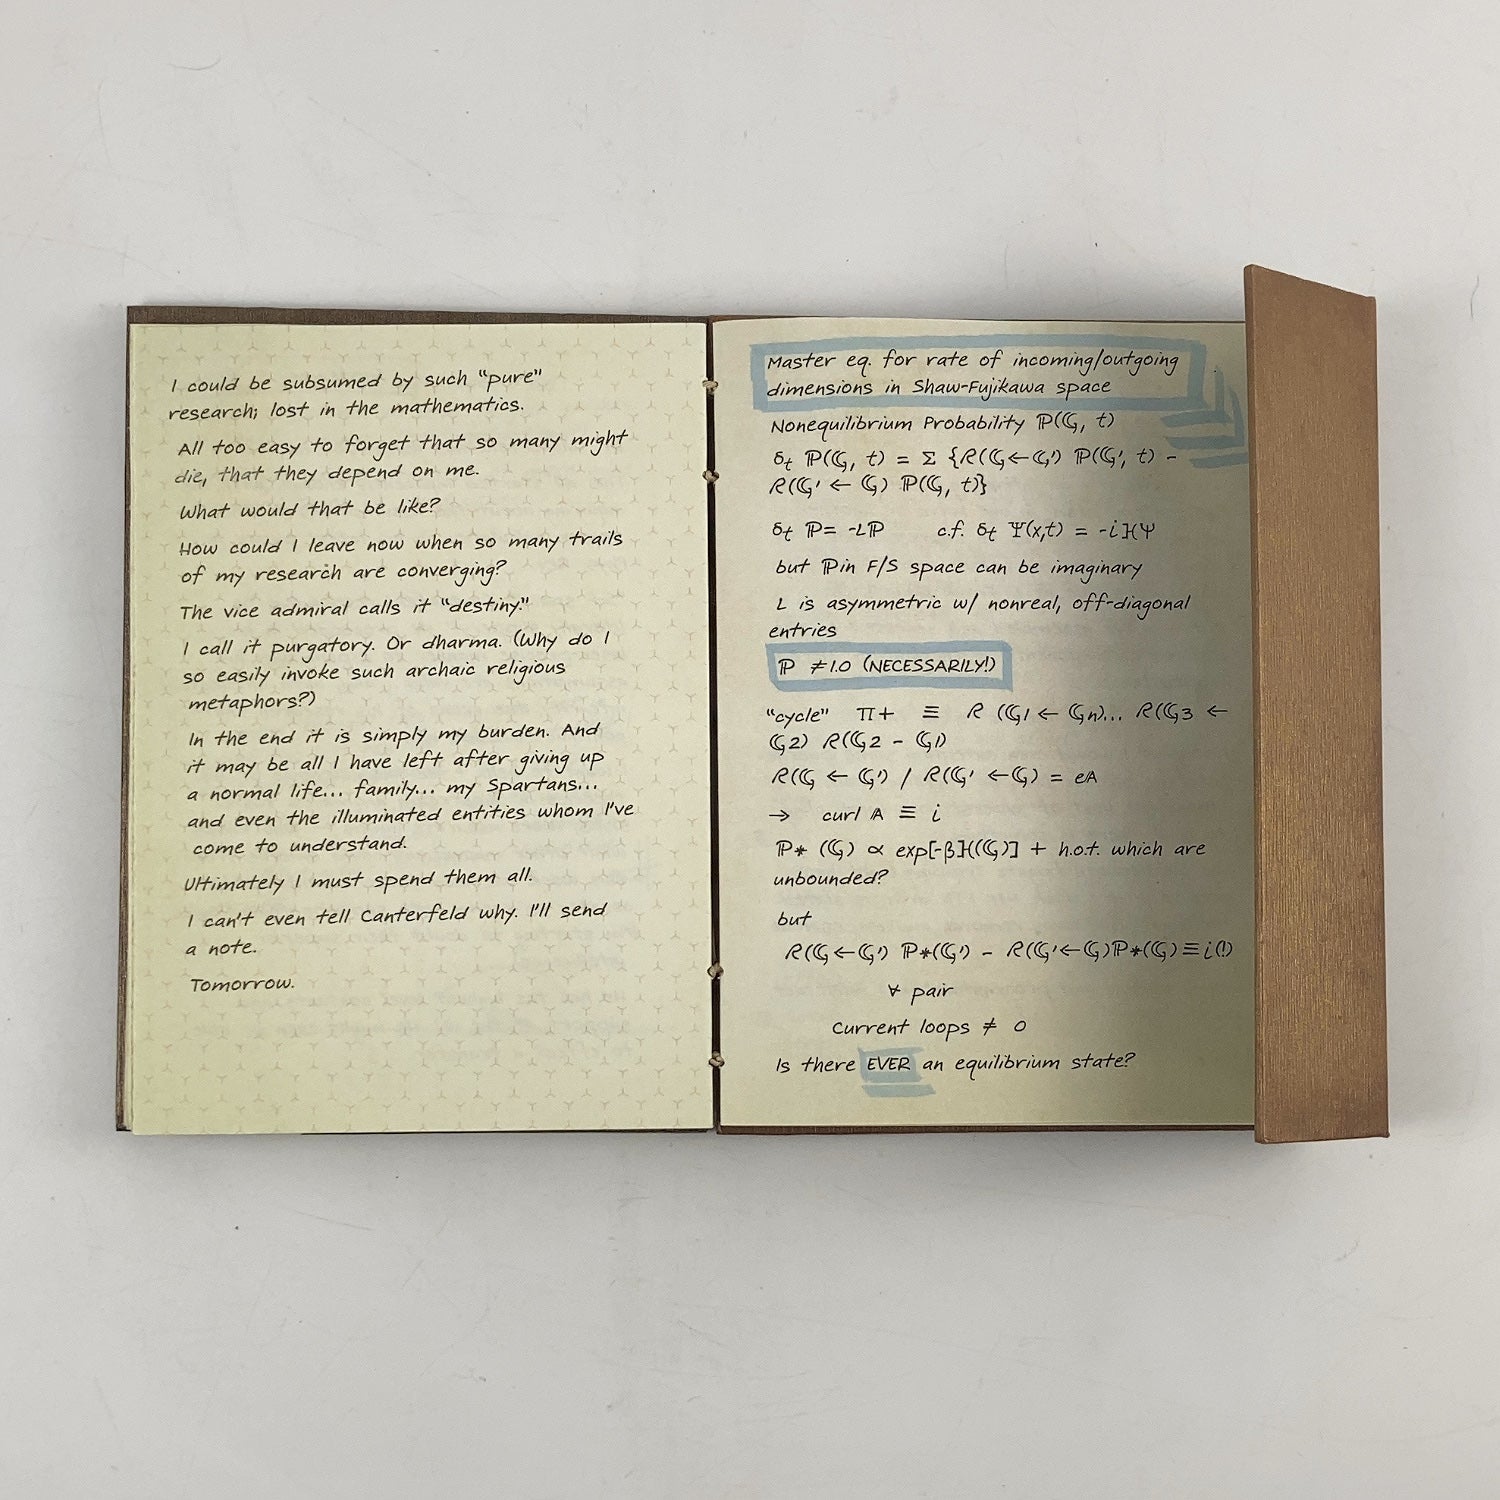 I could be subsumed by such "pure"
research; lost in the mathematics.
All too easy to forget that so many might
die, that they depend on me.
What would that be like?
How could I leave now when so many trails
of my research are converging?
The vice admiral calls it "destiny."
I call it purgatory. Or dharma. (Why do I
so easily invoke such archaic religious
metaphors?)
In the end it is simply my burden. And
it may be all I have left after giving up
a normal life... family... my Spartans...
and even the illuminated entities whom I've
come to understand.
Ultimately I must spend them all.
I can't even tell Canterfeld why. I'll send
a note.
Tomorrow.
Master eq. for rate of incoming/outgoing
dimensions in Shaw-Fujikawa space
Nonequilibrium Probability ℙ(𝔾, t)
δt ℙ(𝔾, t) = Σ {R(𝔾←𝔾') ℙ(𝔾', t) -
R(𝔾' ← 𝔾) ℙ(𝔾, t)}
δt ℙ= -Lℙ c.f. δt Ψ(x,t) = -iℋΨ
but ℙin F/S space can be imaginary
L is asymmetric w/ nonreal, off-diagonal
entries
ℙ ≠1.0 (NECESSARILY!)
"cycle" Π+ ≡ R (𝔾1 ← 𝔾n)... R(𝔾3 ←
𝔾2) R(𝔾2 - 𝔾1)
R(𝔾 ← 𝔾') / R(𝔾' ←𝔾) = e𝔸
→ curl 𝔸 ≡ i
ℙ* (𝔾) ∝ exp[-βℋ(𝔾)] + h.o.t. which are
unbounded?
but
R(𝔾←𝔾') ℙ*(𝔾') - R(𝔾'←𝔾)ℙ*(𝔾)≡i(!)
∀ pair
Current loops ≠ 0
Is there EVER an equilibrium state?